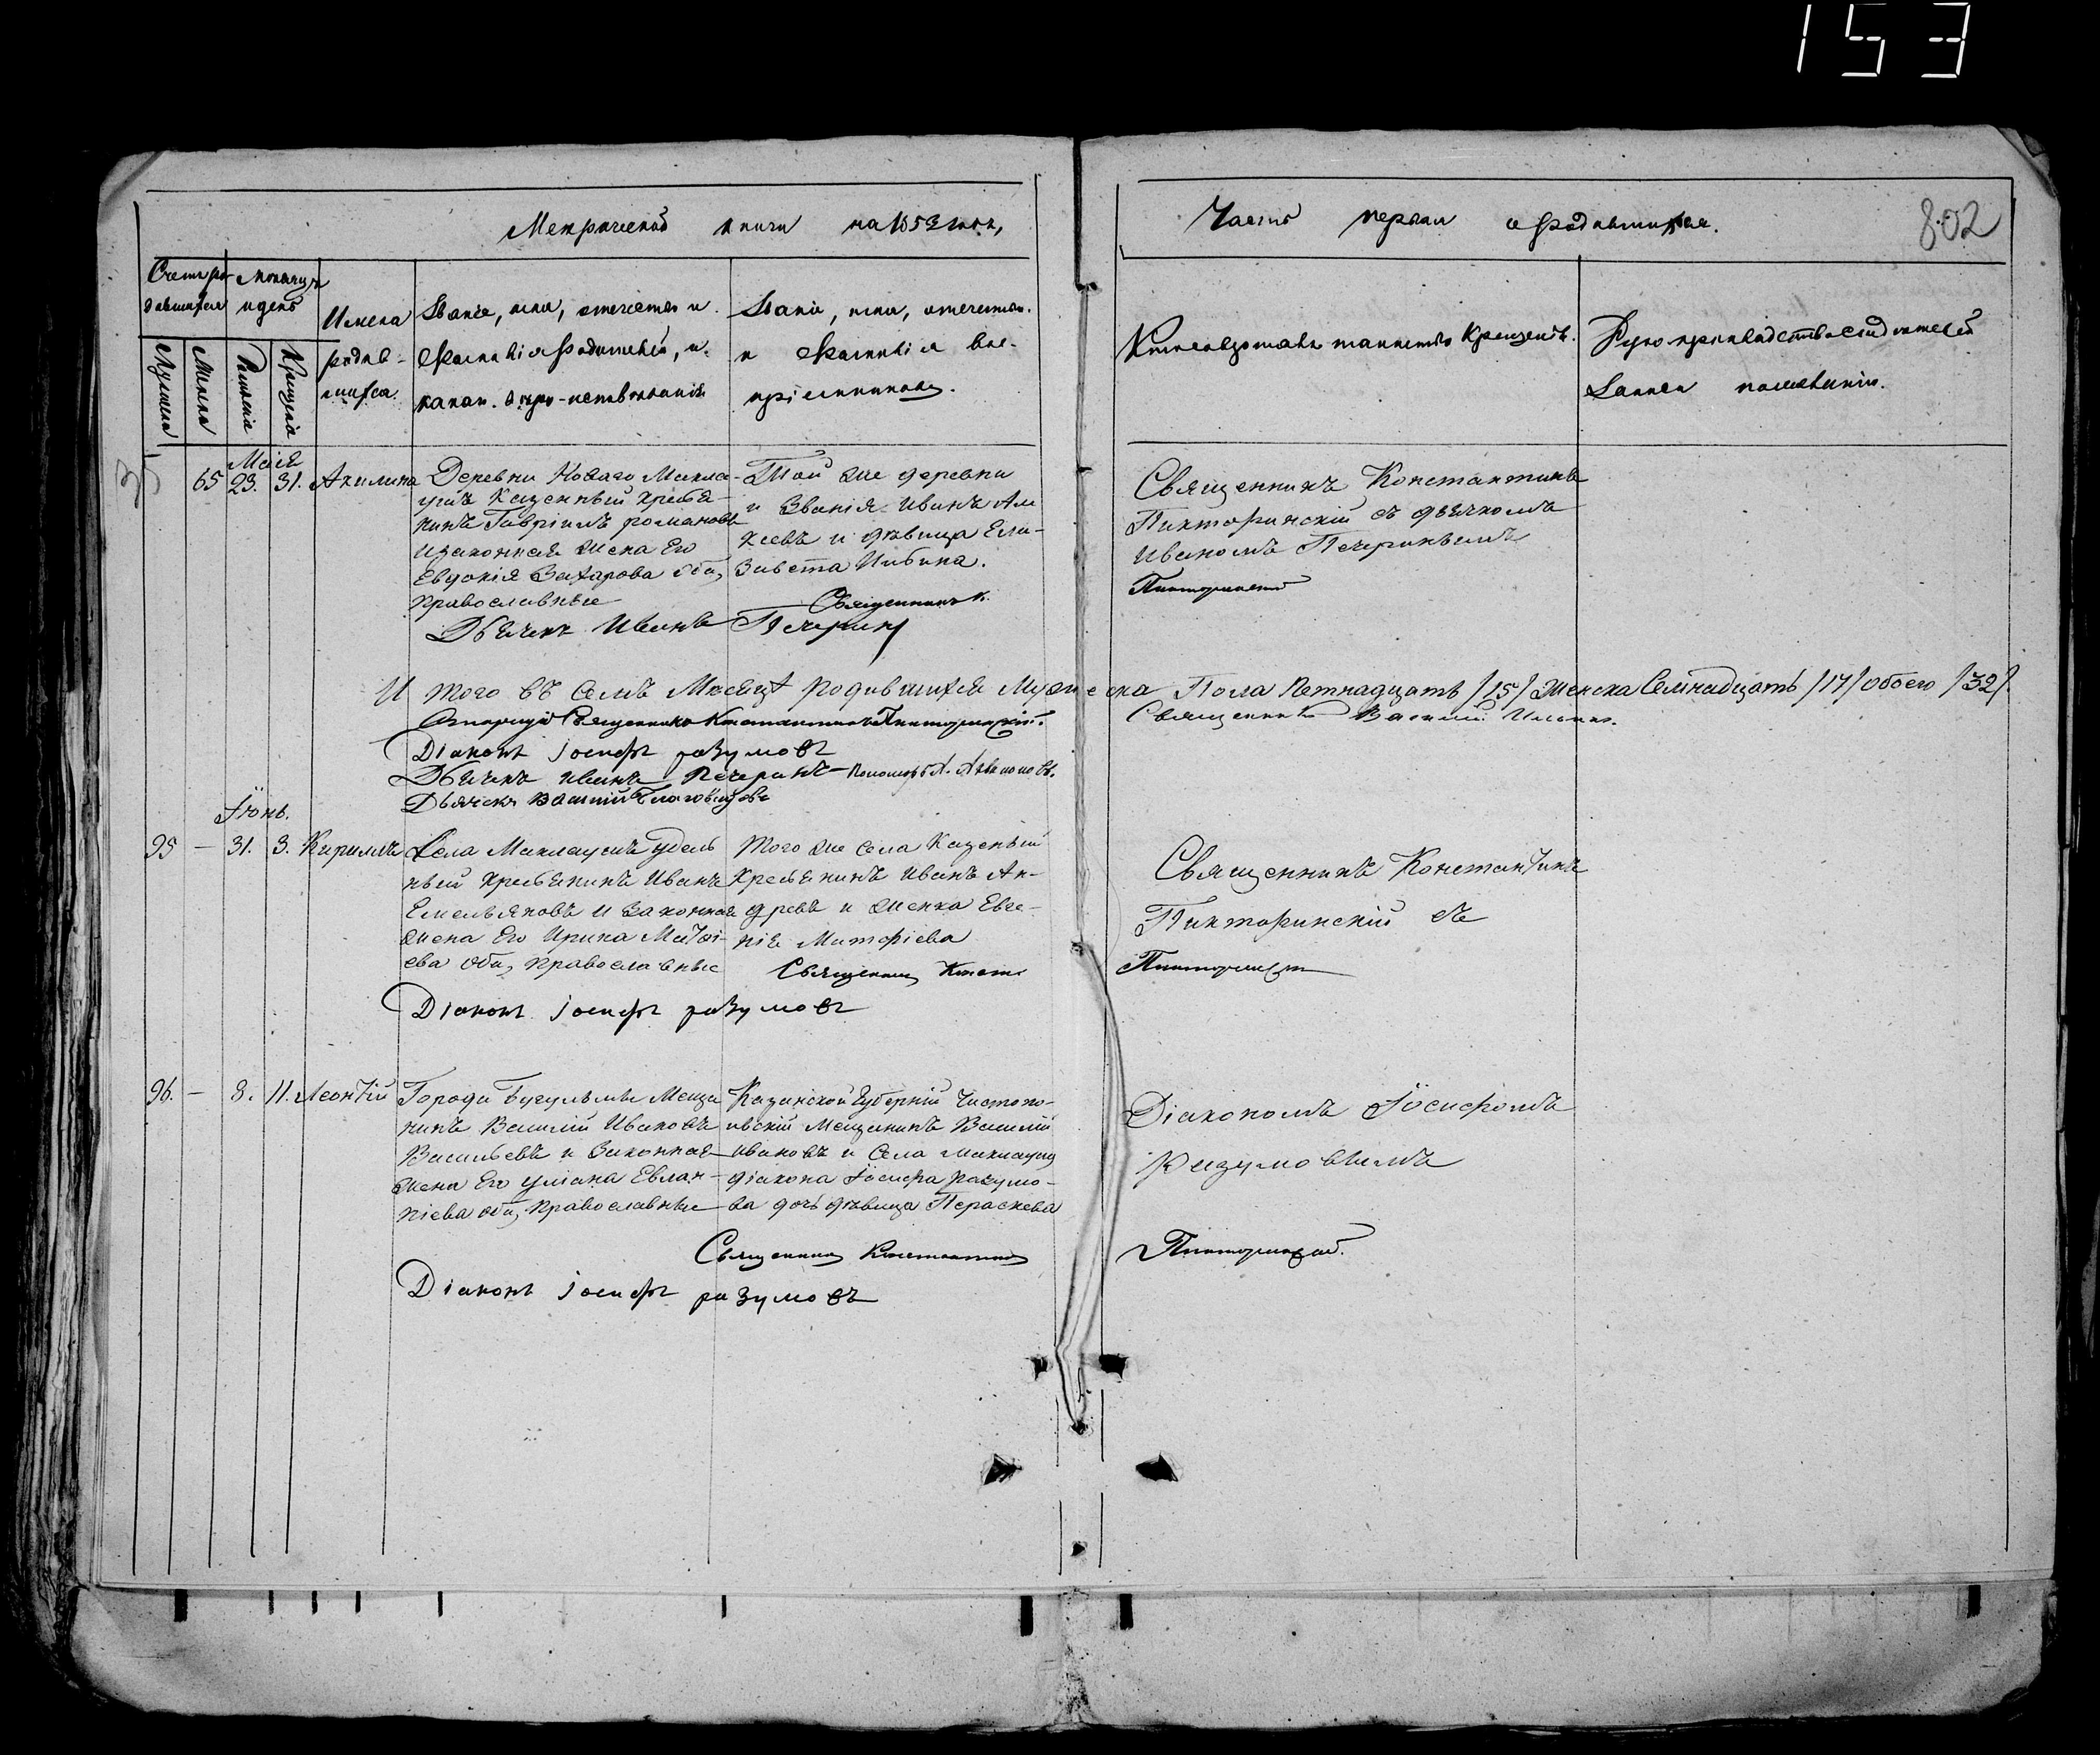 153
802
Метрической книги на 1853 годъ,
Часть первая о родившихся.
Счетъ ро-
дившихся
Мужеска
Женска
Месяцъ
и день
Рожденія
Крещенія
Имена
родив-
шихся.
Званіе, имя, отчество и
фамилія родителей, и
какого вѣро-исповѣданія
Званіе, имя, отчество
и фамилія вос-
пріемниковъ.
Кто совершалъ таинство крещенія.
Рукоприкладство свидетелей
записи по желанію.
Маія
65 23. 31. Акилина
Деревни Новаго Макла-
уша Казенный Кресья-
нинъ Гавріилъ романовъ
изаконная жена Его
Евдокія Захарова оба,
православные
Той же деревни
и Званія Иванъ Али
ксеевъ и дѣвица Ели-
завета
Священникъ К.
Священникъ Константинъ
Пикторинскій съ дьячкомъ
Иваномъ Печеринымъ
Пикторинскій
Дьячекъ Иванъ Печеринъ
И того въ семъ Месяцѣ родившихся Мужеска Пола Петнадцать /15/ Женска Семнадцать /17/ обоего /32/.
Священникъ Константинъ Пикторинскій.
Священникъ Василій
Діаконъ іосифъ разумовъ
Дьячекъ иванъ Печеринъ Пономарь А.
Дьячекъ Василій Благовѣщовъ
Іюнь.
95 – 31. 3. Кириллъ
Села Маклауша удель
ный кресьянинъ Иванъ
Емельяновъ и Законная
жена Его Ирина Матѳі-
ева оба, православные
Того же села Казеный
Кресьянинъ Иванъ Ан-
дреевъ и женка Евге-
нія Матфіева
Священникъ Конст.
Священникъ Константинъ
Пикторинскій съ
Пикторинскій
Діаконъ іосифъ разумовъ
96. – 8. 11. Леонтій
Города Бугульмы Меща
нинъ Василій Ивановъ
Васильевъ и Законная
жена Его уліана Евлам-
піева оба, православные
Казанской Губерній Чистопо-
ивскій Мещанинъ Василій
Ивановъ и Села Маклауша
діакона Іосифа разумо-
ва дочь дѣвица Параскева
Священникъ Константинъ
Діакономъ Іосифомъ
Разумовымъ
Пикторинскій.
Діаконъ іосифъ разумовъ